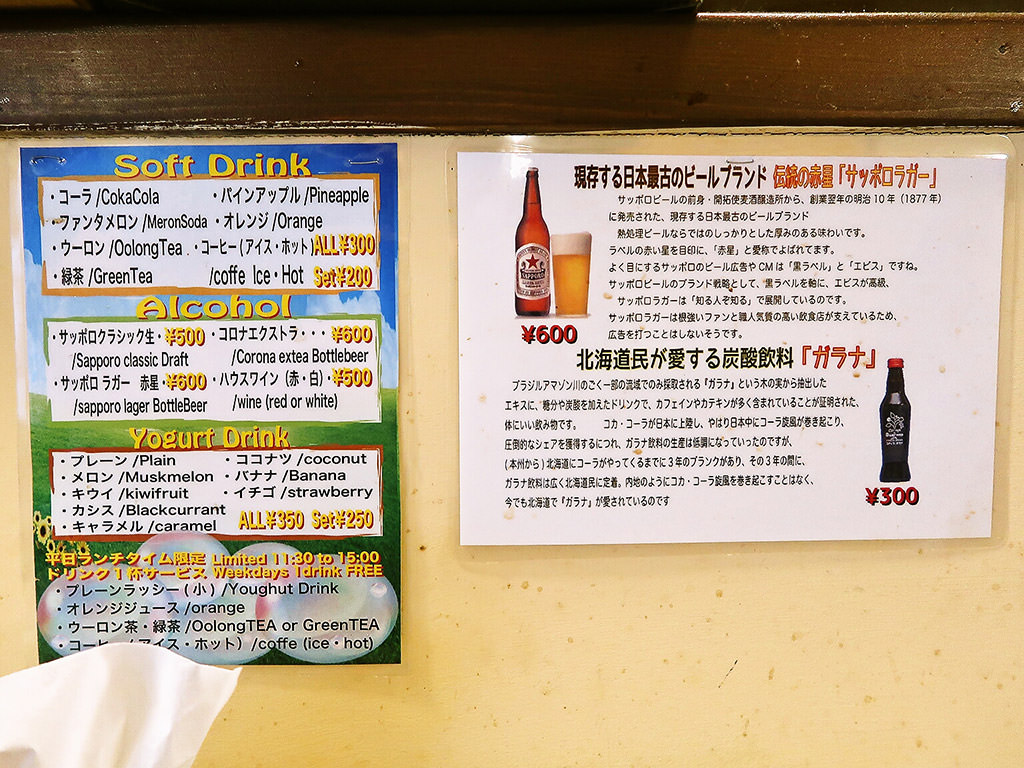 Soft Drink
・コーラ/CokaCola ・パインアップル/Pineapple
・ファンタメロン/MeronSoda ・オレンジ/Orange
・ウーロン/OolongTea ・コーヒー(アイス・ホット) ALL¥300
・緑茶/GreenTea /coffe Ice・Hot Set¥200
Alcohol
・サッポロクラシック生・¥500 ・コロナエクストラ・・・¥600
/Sapporo classic Draft /Corona extea Bottlebeer
・サッポロ ラガー 赤星・¥600 ・ハウスワイン(赤・白)・¥500
/sapporo lager BottleBeer /wine (red or white)
Yogurt Drink
・プレーン/Plain ・ココナツ/coconut
・メロン/Muskmelon ・バナナ/Banana
・キウイ/kiwifruit ・イチゴ/strawberry
・カシス/Blackcurrant
・キャラメル/caramel ALL¥350 Set¥250
平日ランチタイム限定 Limited 11:30 to 15:00
ドリンク1杯サービス Weekdays 1drink FREE
・プレーンラッシー(小)/Youghut Drink
・オレンジジュース/orange
・ウーロン茶・緑茶/OolongTEA or GreenTEA
・コーヒー(アイス・ホット)/coffe (ice・hot)
現存する日本最古のビールブランド 伝統の赤星「サッポロラガー」
サッポロビールの前身・開拓使麦酒醸造所から、創業翌年の明治10年(1877年)
に発売された、現存する日本最古のビールブランド
熱処理ビールならではのしっかりとした厚みのある味わいです。
ラベルの赤い星を目印に、「赤星」と愛称でよばれてます。
よく目にするサッポロのビール広告やCMは「黒ラベル」と「エビス」ですね。
サッポロビールのブランド戦略として、黒ラベルを軸に、エビスが高級、
サッポロラガーは「知る人ぞ知る」で展開しているのです。
サッポロラガーは根強いファンと職人気質の高い飲食店が支えているため、
広告を打つことはしないそうです。
SAPPORO
¥600
北海道民が愛する炭酸飲料「ガラナ」
ブラジルアマゾン川のごく一部の流域でのみ採取される「ガラナ」という木の実から抽出した
エキスに、糖分や炭酸を加えたドリンクで、カフェインやカテキンが多く含まれていることが証明された、
体にいい飲み物です。 コカ・コーラが日本に上陸し、やはり日本中にコーラ旋風が巻き起こり、
圧倒的なシェアを獲得するにつれ、ガラナ飲料の生産は低調になっていったのですが、
(本州から)北海道にコーラがやってくるまでに3年のブランクがあり、その3年の間に、
ガラナ飲料は広く北海道民に定着。内地のようにコカ・コーラ旋風を巻き起こすことはなく、
今でも北海道で『ガラナ』が愛されているのです
¥300